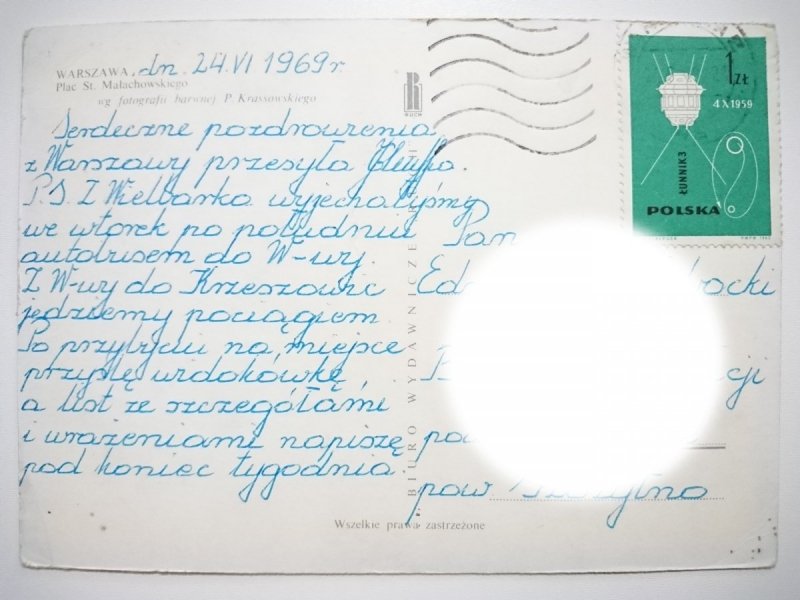 WARSZAWA, dn. 24.VI 1969r
Plac St. Małachowskiego
wg fotografii barwnej P. Krassowskiego
RUCH
Serdeczne pozdrowienia
z Warszawy przesyła
P.S. Z Wielbarka wyjechałyśmy
we wtorek po południu
autobusem do W-wy.
Z W-wy do Krzeszowic
jedziemy pociągiem.
Po przybyciu na miejsce
przyślę widokówkę,
a list ze szczegółami
i wrażeniami napiszę
pod koniec tygodnia.
Wszelkie prawa zastrzeżone
BIURO WYDAWNICZE
1 ZŁ
4 X 1959
ŁUNNIK 3
POLSKA
Pan
pow